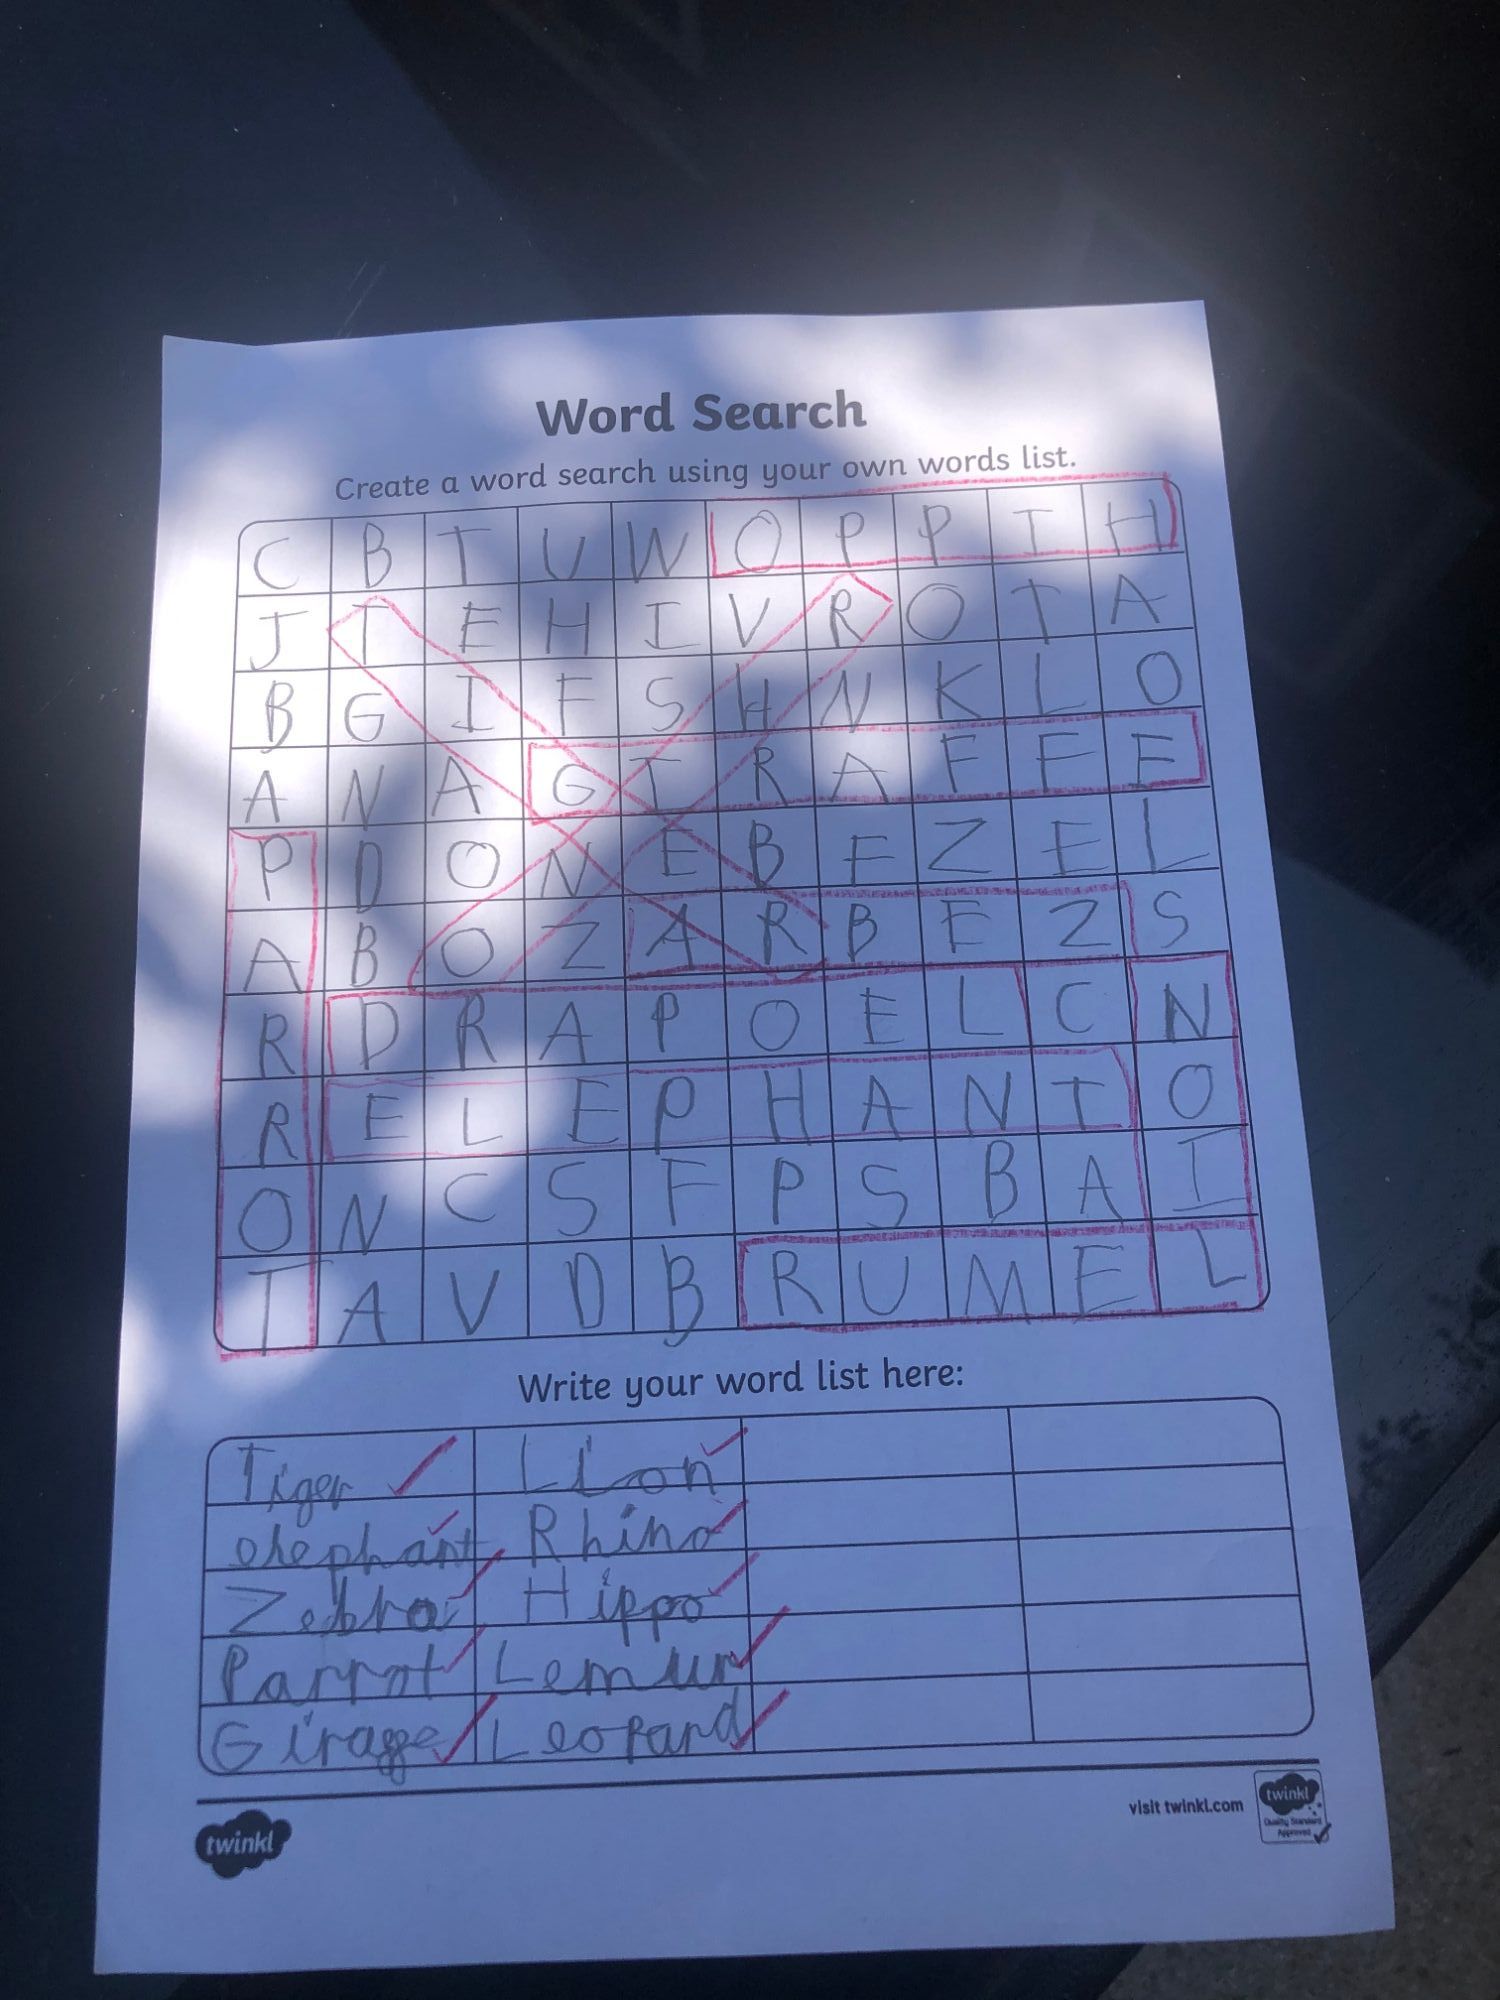 Word Search
Create a word search using your own words list.
C B T U W O P P I H
J T E H I V R O T A
B G I F S H N K L O
A N A G I R A F F E
P D O N E B F Z E L
A B O Z A R B E Z S
R D R A P O E L C N
R E L E P H A N T O
O N C S F P S B A I
T A V D B R U M E L
Write your word list here:
Tiger Lion
elephant Rhino
Zebra Hippo
Parrot Lemur
Giraffe Leopard
twinkl
visit twinkl.com
twinkl
Quality Standard
Approved